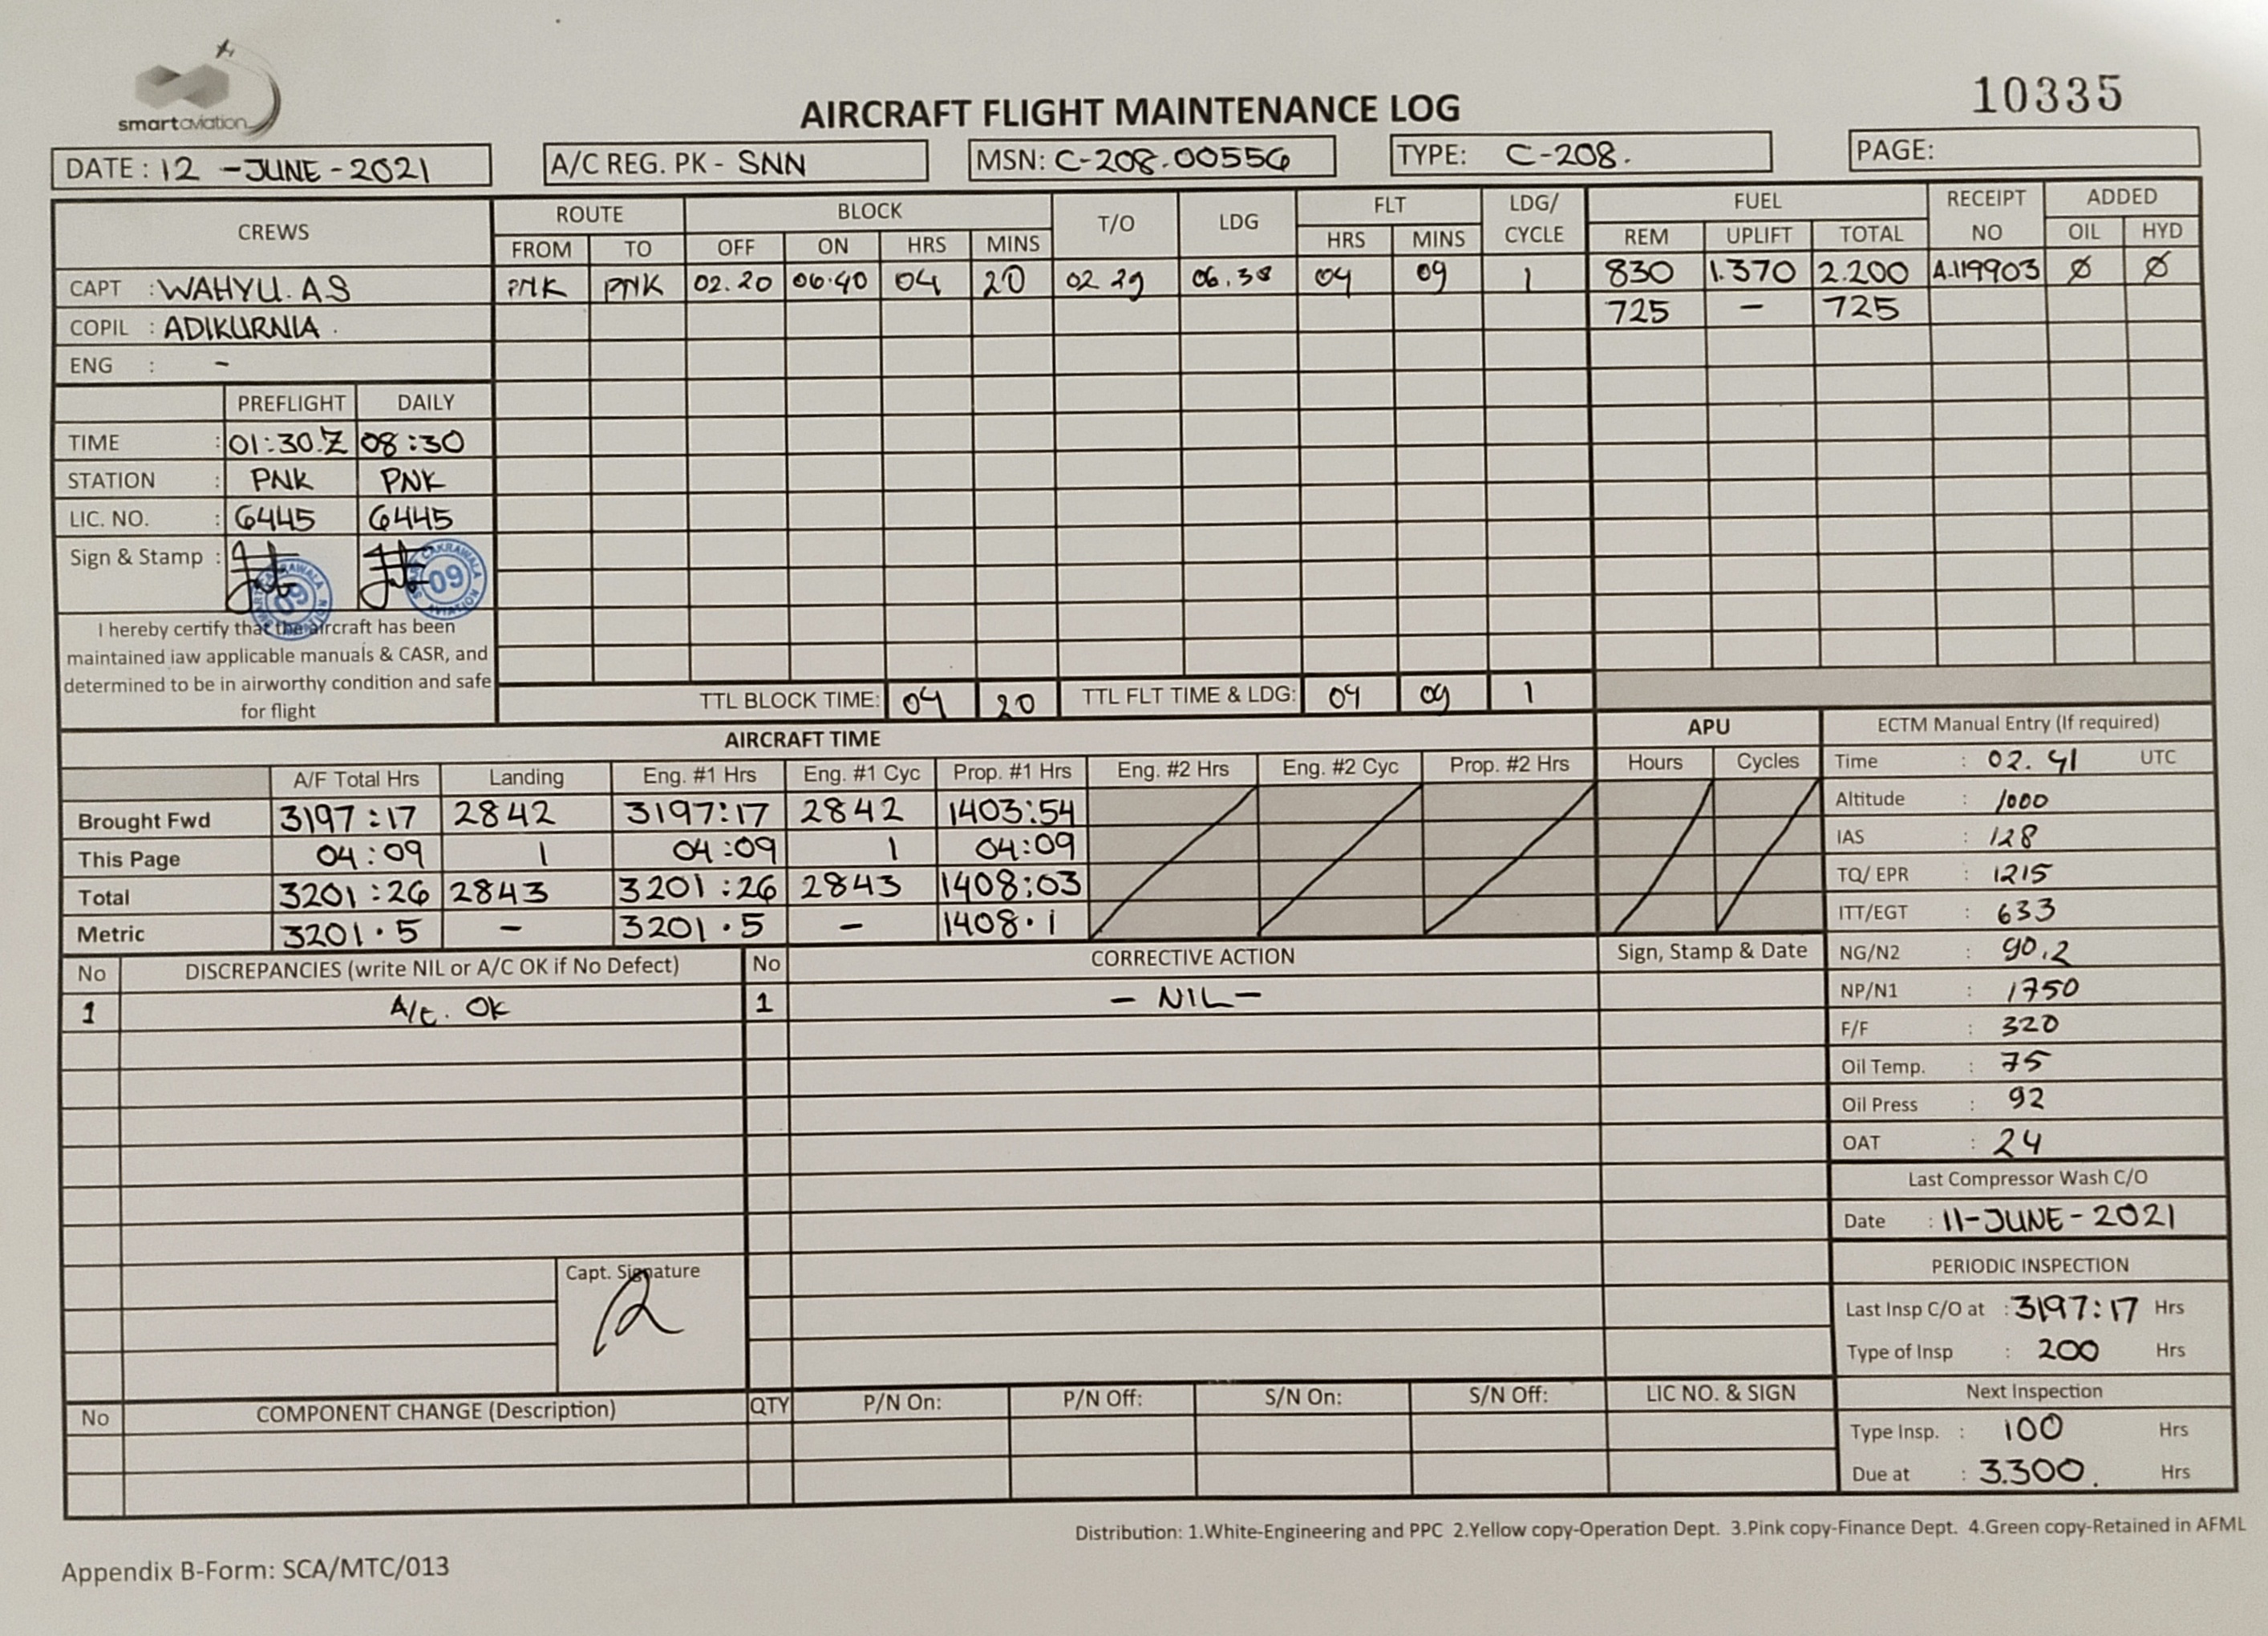 smartaviation
10335
AIRCRAFT FLIGHT MAINTENANCE LOG
DATE : 12 -JUNE-2021
A/C REG. PK - SNN
MSN: C-208.00556
TYPE: C-208.
PAGE:
CREWS ROUTE BLOCK T/O LDG FLT LDG/ CYCLE FUEL RECEIPT NO ADDED
FROM TO OFF ON HRS MINS HRS MINS REM UPLIFT TOTAL OIL HYD
CAPT : WAHYU. AS PNK PNK 02.20 06.40 04 20 02 29 06.38 04 09 1 830 1.370 2.200 A.119903 Ø Ø
COPIL : ADIKURNIA . 725 - 725
ENG : -
PREFLIGHT DAILY
TIME : 01:30.Z 08:30
STATION : PNK PNK
LIC. NO. : 6445 6445
Sign & Stamp :
09
09
I hereby certify that the aircraft has been
maintained iaw applicable manuals & CASR, and
determined to be in airworthy condition and safe
for flight
TTL BLOCK TIME: 04 20 TTL FLT TIME & LDG: 04 09 1
AIRCRAFT TIME APU
A/F Total Hrs Landing Eng. #1 Hrs Eng. #1 Cyc Prop. #1 Hrs Eng. #2 Hrs Eng. #2 Cyc Prop. #2 Hrs Hours Cycles
Brought Fwd 3197:17 2842 3197:17 2842 1403:54
This Page 04:09 1 04:09 1 04:09
Total 3201:26 2843 3201:26 2843 1408:03
Metric 3201.5 - 3201.5 - 1408.1
ECTM Manual Entry (If required)
Time : 02.41 UTC
Altitude : 1000
IAS : 128
TQ/ EPR : 1215
ITT/EGT : 633
NG/N2 : 90.2
NP/N1 : 1750
F/F : 320
Oil Temp. : 75
Oil Press : 92
OAT : 24
Last Compressor Wash C/O
Date : 11-JUNE-2021
PERIODIC INSPECTION
Last Insp C/O at : 3197:17 Hrs
Type of Insp : 200 Hrs
Next Inspection
Type Insp. : 100 Hrs
Due at : 3.300. Hrs
No DISCREPANCIES (write NIL or A/C OK if No Defect) No CORRECTIVE ACTION Sign, Stamp & Date
1 A/c. OK 1 - NIL -
Capt. Signature
No COMPONENT CHANGE (Description) QTY P/N On: P/N Off: S/N On: S/N Off: LIC NO. & SIGN
Distribution: 1.White-Engineering and PPC 2.Yellow copy-Operation Dept. 3.Pink copy-Finance Dept. 4.Green copy-Retained in AFML
Appendix B-Form: SCA/MTC/013